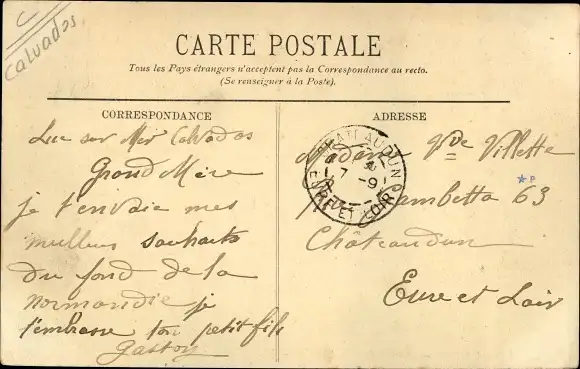 Calvados
CARTE POSTALE
Tous les Pays étrangers n'acceptent pas la Correspondance au recto.
(Se renseigner à la Poste).
CORRESPONDANCE
Luc sur Mer Calvados
Grand Mère
je t'envoie mes
meilleurs souhaits
du fond de la
normandie je
t'embrasse ton petit fils
Gaston
ADRESSE
Madame Vve Villette
Rue Gambetta 63
Châteaudun
Eure et Loir
CHATEAUDUN
7 -9
EURE ET LOIR